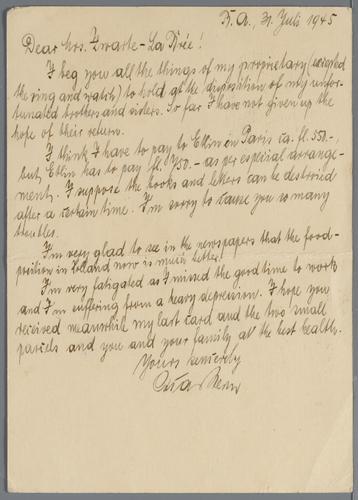 B.A., 31. Juli 1945
Dear Mrs. Zwarte - La Drée!
I beg you all the things of my proprietary (
the ring and watch) to hold at the disposition of my unfor-
tunated brothers and sisters. So far I have not given up the
hope of their return.
I think I have to pay to Ellin on Paris ca. fl. 550.-,
but Ellin has to pay fl. 750.- as per especial arrange-
ment. I suppose the books and letters can be destroied
after a certain time. I'm sorry to cause you so many
troubles.
I'm very glad to see in the newspapers that the food-
position in Holland now is much better!
I'm very fatigated as I missed the good time to work
and I'm suffering from a heavy depression. I hope you
received meanwhile my last card and the two small
parcels and you and your family at the best health.
Yours sincerely